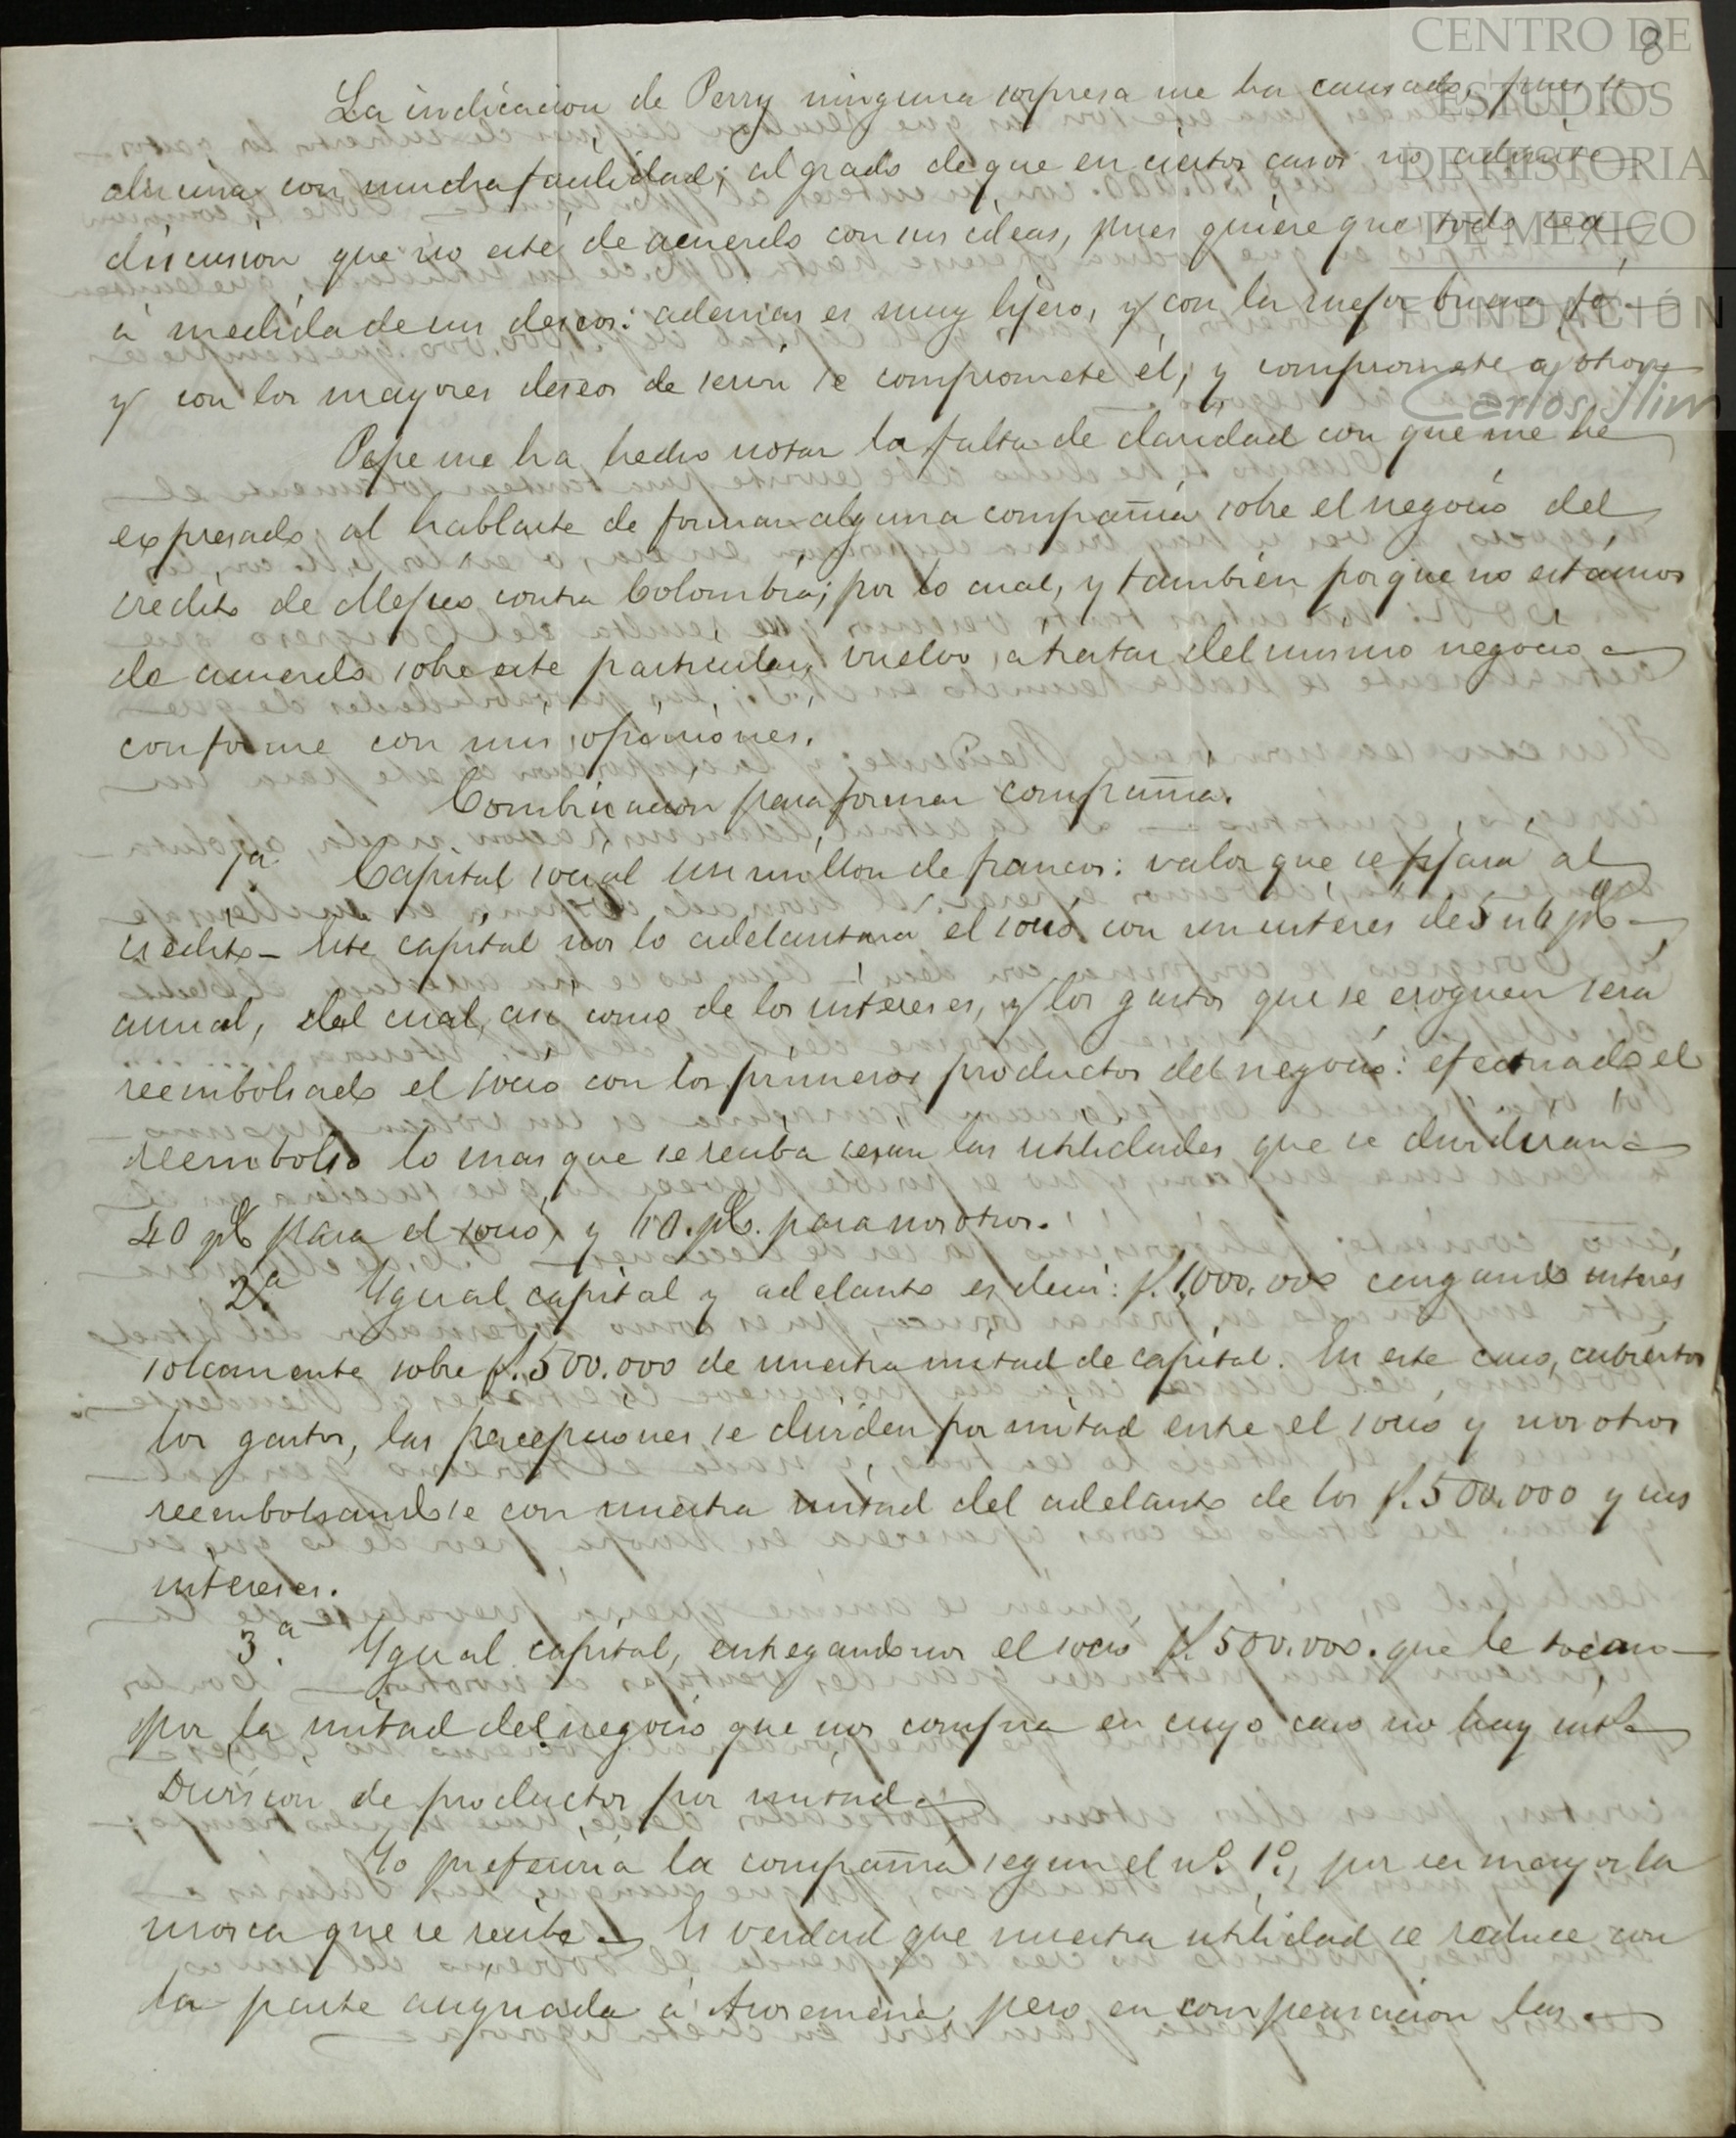 8
CENTRO DE
ESTUDIOS
DE HISTORIA
DE MEXICO
FUNDACIÓN
Carlos Slim
La indicacion de Perry ninguna sorpresa me ha causado, pues se
alucina con mucha facilidad; al grado de que en ciertos casos no admite
discusion que no esté de acuerdo con sus ideas, pues quiere que todo sea
á medida de sus deseos: ademas es muy lijero, y con la mejor buena fé
y con los mayores deseos de servir se compromete él, y compromete a otros
Pepe me ha hecho notar la falta de claridad con que me he
expresado al hablarte de formar alguna compañia sobre el negocio del
credito de Mejico contra Colombia; por lo cual, y tambien porque no estamos
de acuerdo sobre este particular, vuelvo a tratar del mismo negocio
conforme con mis opiniones.
Combinacion para formar compañia.
1a. Capital social un millon de francos: valor que se fijara al
credito — Este capital nos lo adelantara el socio con un interes de 5 u 6 p%
anual, del cual, asi como de los intereses, y los gastos que se eroguen sera
reembolsado el socio con los primeros productos del negocio: efectuado el
reembolso lo mas que se reciba seran las utilidades que se dividiran
40 p% para el socio, y 60. p%. para nosotros.
2.a Ygual capital y adelanto es decir: f. 1,000.000 cargando interés
solamente sobre f. 500.000 de nuestra mitad de capital. En este caso, cubiertos
los gastos, las percepciones se dividen por mitad entre el socio y nosotros
reembolsandose con nuestra mitad del adelanto de los f. 500.000 y sus
intereses.
3.a Ygual capital, entregandonos el socio f. 500.000. que le tocan
por la mitad del negocio que nos compra en cuyo caso no hay int.s
Division de productos por mitad.
Yo preferiria la compañia segun el n.o 1.o, por ser mayor la
mosca que se recibe. Es verdad que nuestra utilidad se reduce con
la parte asignada á pero en compensacion las